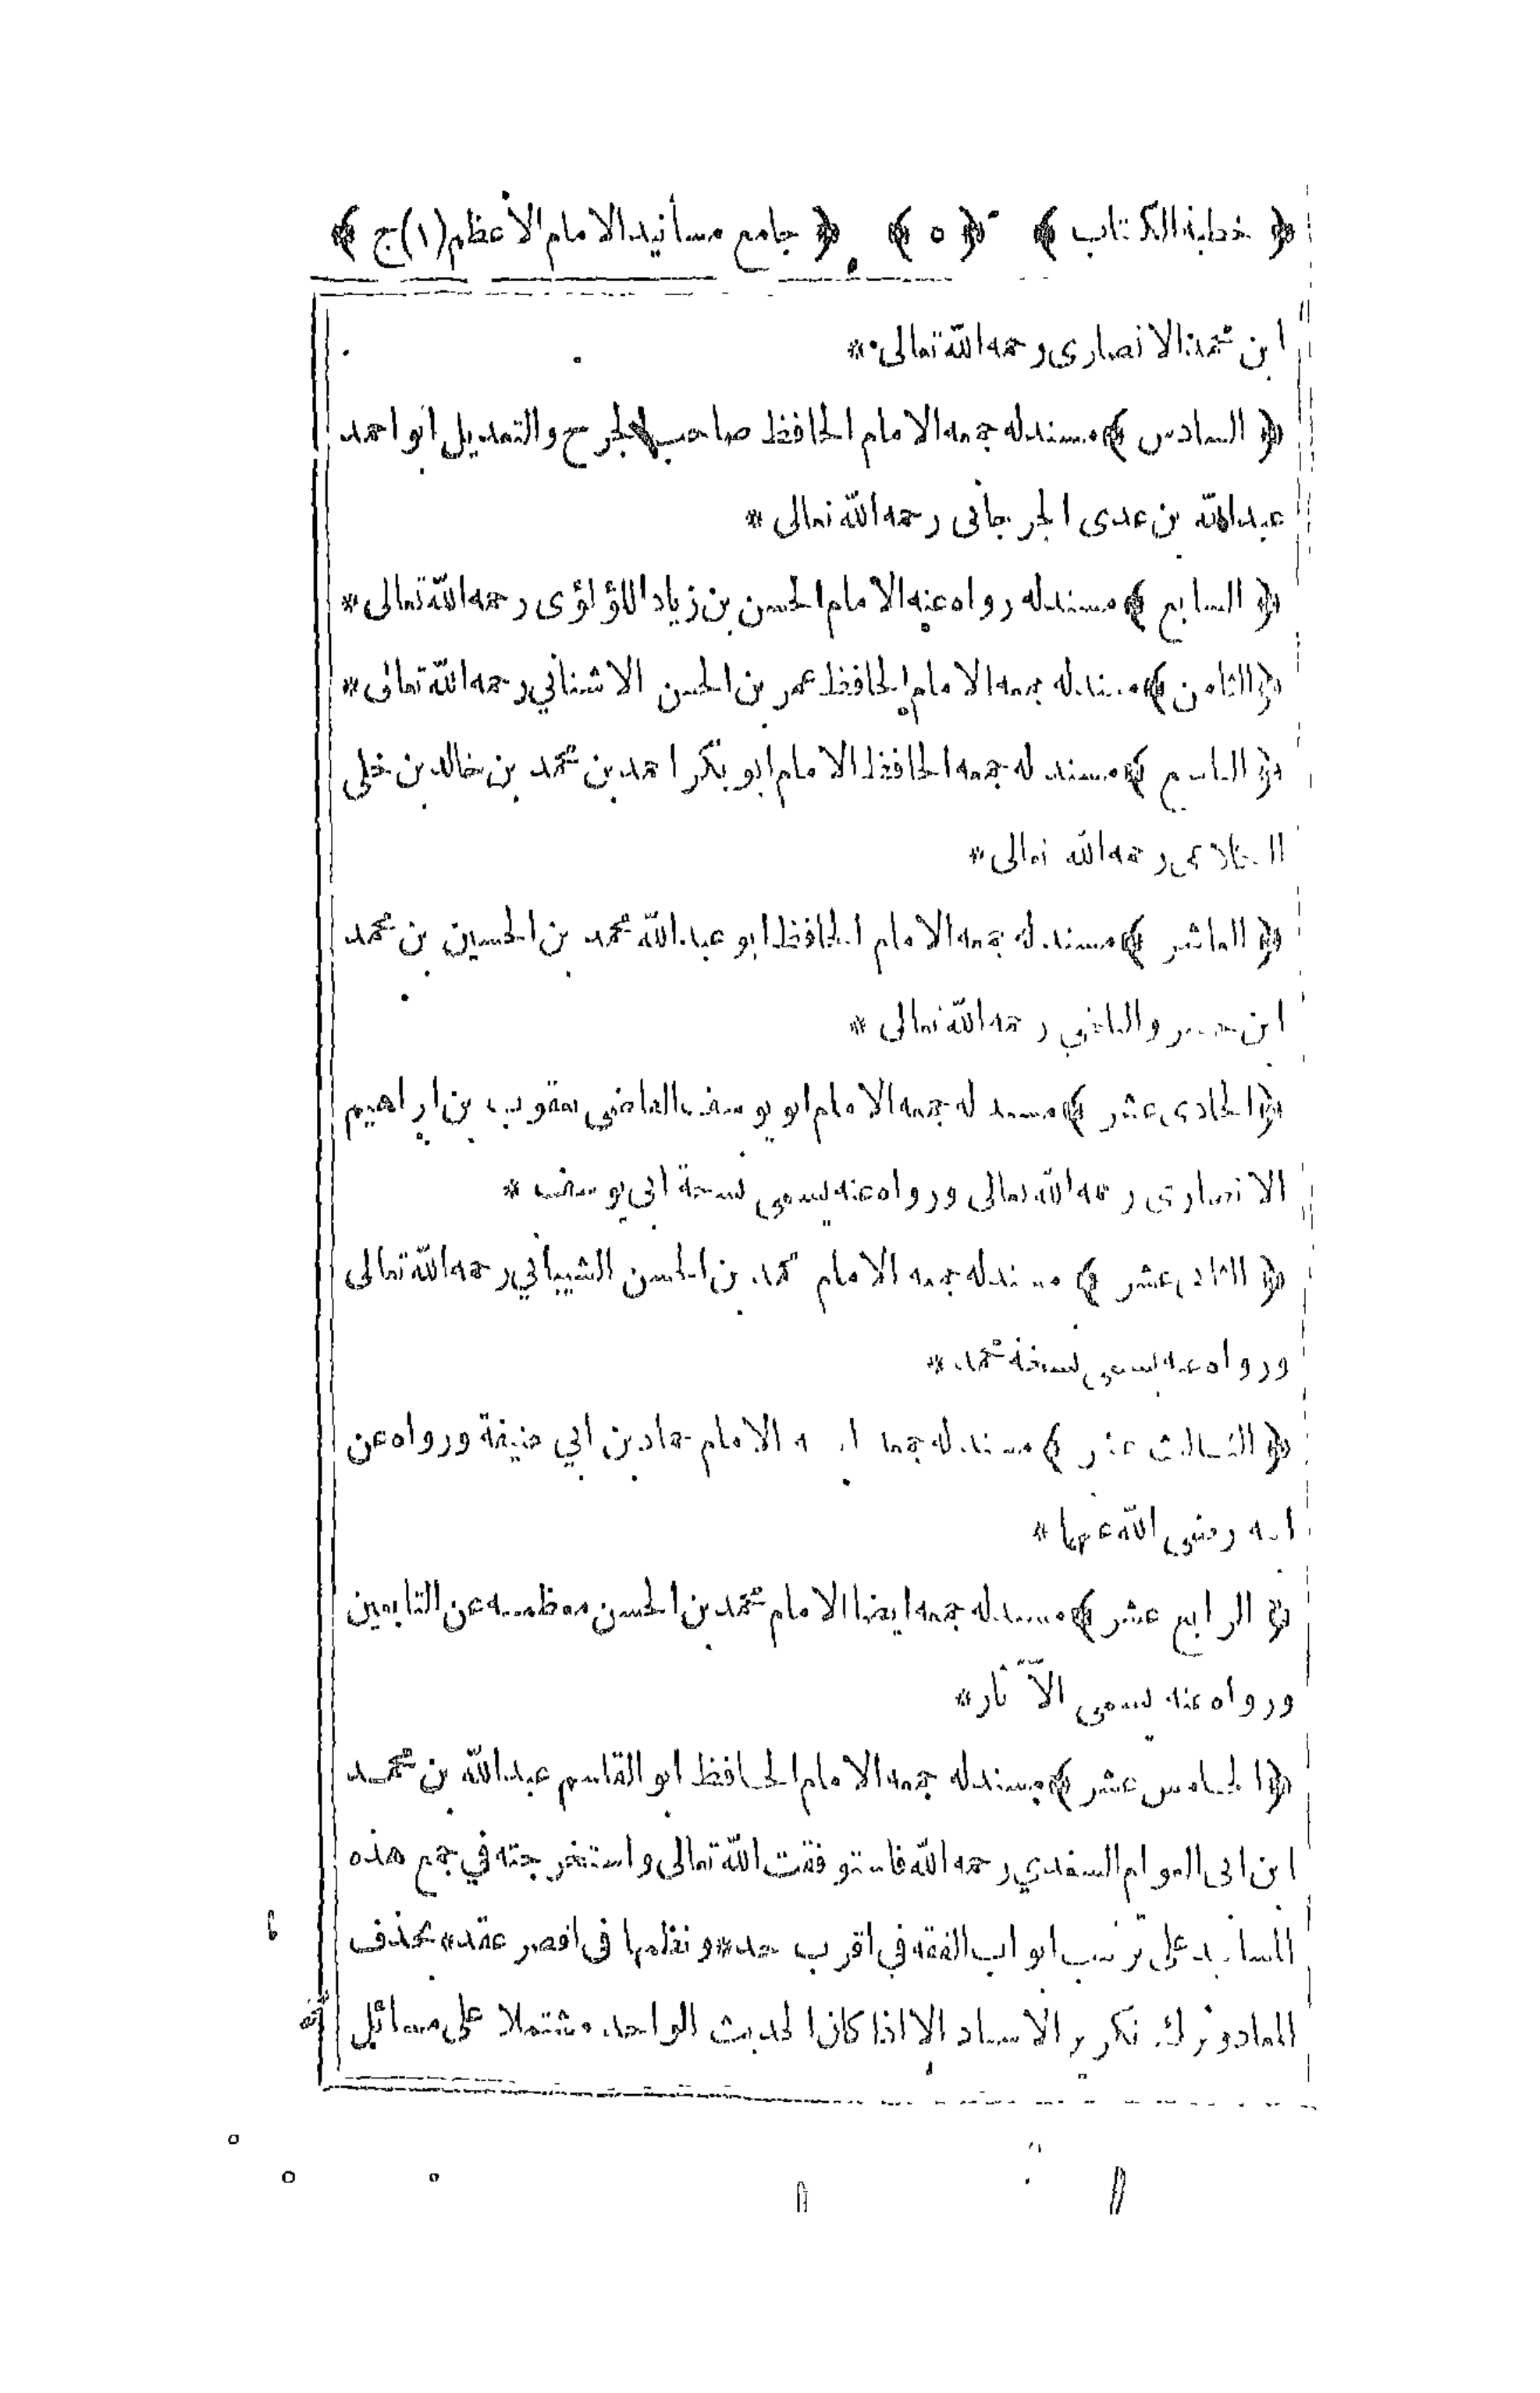 ﴿ خطبة الكتاب ﴾ ﴿ ٥ ﴾ ﴿ جامع مسانيد الامام الاعظم (١) ج ﴾
ابن محمد الانصارى رحمه الله تعالى *
﴿ السادس ﴾ مسند له جمعه الامام الحافظ صاحب الجرح والتعديل ابو احمد
عبد الله بن عدى الجرجانى رحمه الله تعالى *
﴿ السابع ﴾ مسند له رواه عنه الامام الحسن بن زياد اللؤلؤى رحمه الله تعالى *
﴿ الثامن ﴾ مسند له جمعه الامام الحافظ عمر بن الحسن الاشناني رحمه الله تعالى *
﴿ التاسع ﴾ مسند له جمعه الحافظ الامام ابو بكر احمد بن محمد بن خالد بن خلى
الكلاعى رحمه الله تعالى *
﴿ العاشر ﴾ مسند له جمعه الامام الحافظ ابو عبد الله محمد بن الحسين بن محمد
ابن خسرو البلخي رحمه الله تعالى *
﴿ الحادى عشر ﴾ مسند له جمعه الامام ابو يوسف القاضى يعقوب بن ابراهيم
الانصارى رحمه الله تعالى ورواه عنه يسمى نسخة ابى يوسف *
﴿ الثانى عشر ﴾ مسند له جمعه الامام محمد بن الحسن الشيباني رحمه الله تعالى
ورواه عنه يسمى نسخة محمد *
﴿ الثالث عشر ﴾ مسند له جمعه ابنه الامام حماد بن ابي حنيفة ورواه عن
ابيه رضى الله عنهما *
﴿ الرابع عشر ﴾ مسند له جمعه ايضا الامام محمد بن الحسن معظمه عن التابعين
ورواه عنه يسمى الآثار *
﴿ الخامس عشر ﴾ مسند له جمعه الامام الحافظ ابو القاسم عبد الله بن محمد
ابن ابى العوام السغدي رحمه الله فاستوفقت الله تعالى واستخرجته في جمع هذه
المسانيد على ترتيب ابواب الفقه في اقرب حد * ونظمها فى اقصر عقد * بحذف
المعاد وترك تكرير الاسناد الا اذا كان الحديث الواحد مشتملا على مسائل